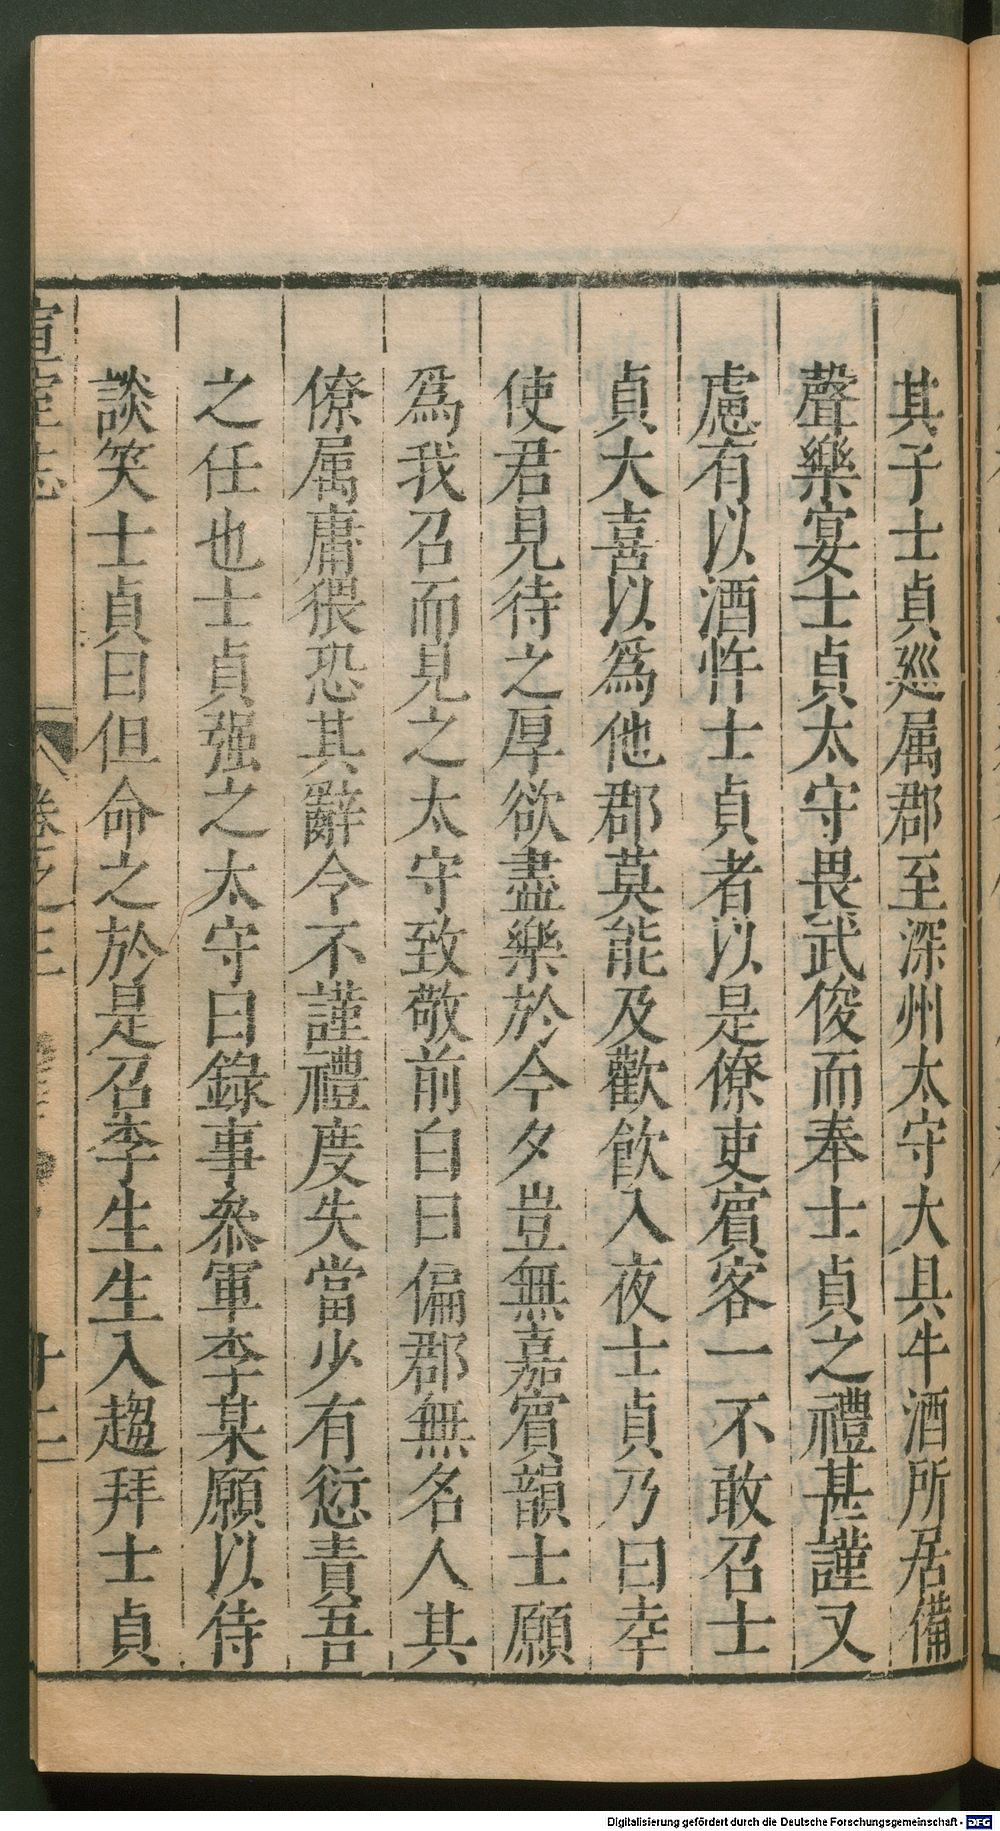 其子士貞巡属郡至深州太守大具牛酒所居備
聲樂宴士貞太守畏武俊而奉士貞之禮甚謹又
慮有以酒忤士貞者以是僚吏賓客一不敢召士
貞大喜以爲他郡莫能及歡飮入夜士貞乃曰幸
使君見待之厚欲盡樂於今夕豈無嘉賓韻士願
爲我召而見之太守致敬前白曰偏郡無名人其
僚属庸猥恐其辭令不謹禮度失當少有愆責吾
之任也士貞强之太守曰錄事叅軍李某願以侍
談笑士貞曰但命之於是召李生生入趨拜士貞
宣室志 卷之三 十二
Digitalisierung gefördert durch die Deutsche Forschungsgemeinschaft - DFG